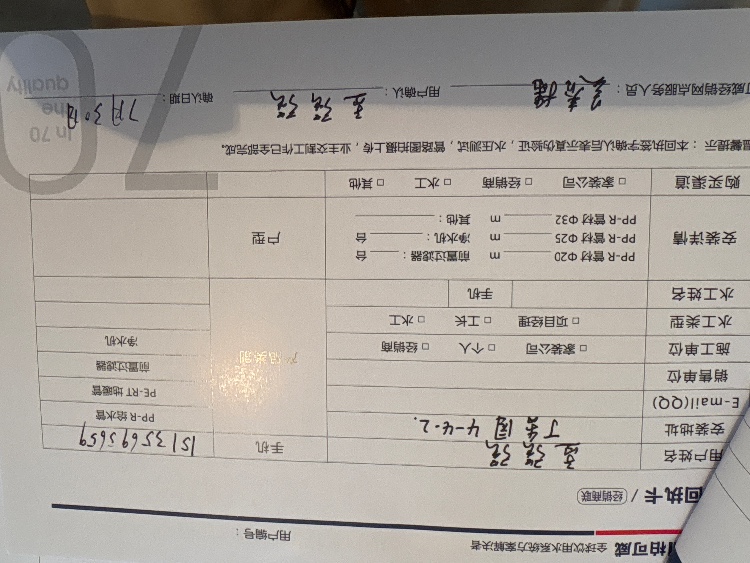 柏可威 全球饮用水系统方案解决者
用户编号：
回执卡 / 经销商联
用户姓名 手机 15135695659
安装地址 4-4-2. PP-R 给水管
E-mail(QQ) PE-RT 地暖管
销售单位 前置过滤器
施工单位 □ 家装公司 □ 个人 □ 经销商 产品类别 净水机
水工类型 □ 项目经理 □ 工长 □ 水工
水工姓名 手机
安装详情 PP-R 管材 Φ20 m 前置过滤器： 台 户型
PP-R 管材 Φ25 m 净水机： 台
PP-R 管材 Φ32 m 其他：
购买渠道 □ 家装公司 □ 经销商 □ 水工 □ 其他
温馨提示：本回执签字确认后表示真伪验证，水压测试，管路图拍摄上传，业主交割工作已全部完成。
可威经销网点服务人员： 用户确认： 确认日期： 7月30日
70
In 70
the
quality